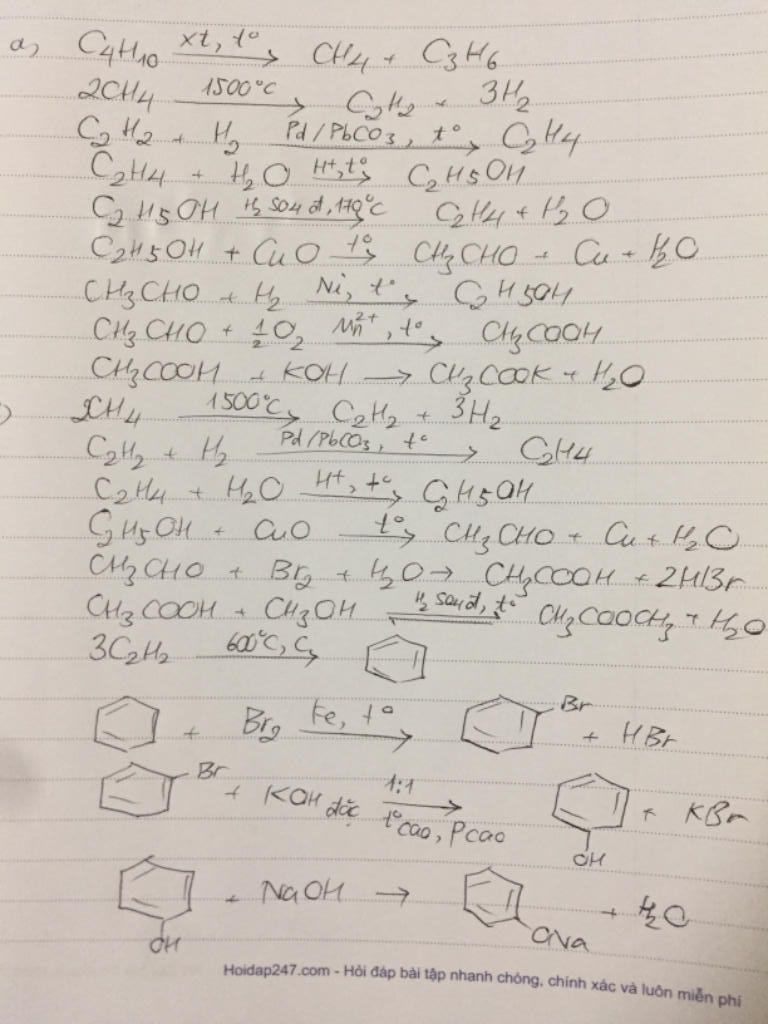 a) C4H10 xt, t° → CH4 + C3H6
2CH4 1500°C → C2H2 + 3H2
C2H2 + H2 Pd/PbCO3, t° → C2H4
C2H4 + H2O H+, t° → C2H5OH
C2H5OH H2SO4 đ, 170°C → C2H4 + H2O
C2H5OH + CuO t° → CH3CHO + Cu + H2O
CH3CHO + H2 Ni, t° → C2H5OH
CH3CHO + 1/2 O2 Mn2+, t° → CH3COOH
CH3COOH + KOH → CH3COOK + H2O
) 2CH4 1500°C → C2H2 + 3H2
C2H2 + H2 Pd/PbCO3, t° → C2H4
C2H4 + H2O H+, t° → C2H5OH
C2H5OH + CuO t° → CH3CHO + Cu + H2O
CH3CHO + Br2 + H2O → CH3COOH + 2HBr
CH3COOH + CH3OH H2SO4 đ, t° ⇌ CH3COOCH3 + H2O
3C2H2 600°C, C →
+ Br2 Fe, t° → Br + HBr
Br + KOH đặc 1:1 t° cao, P cao → OH + KBr
OH + NaOH → ONa + H2O
Hoidap247.com - Hỏi đáp bài tập nhanh chóng, chính xác và luôn miễn phí